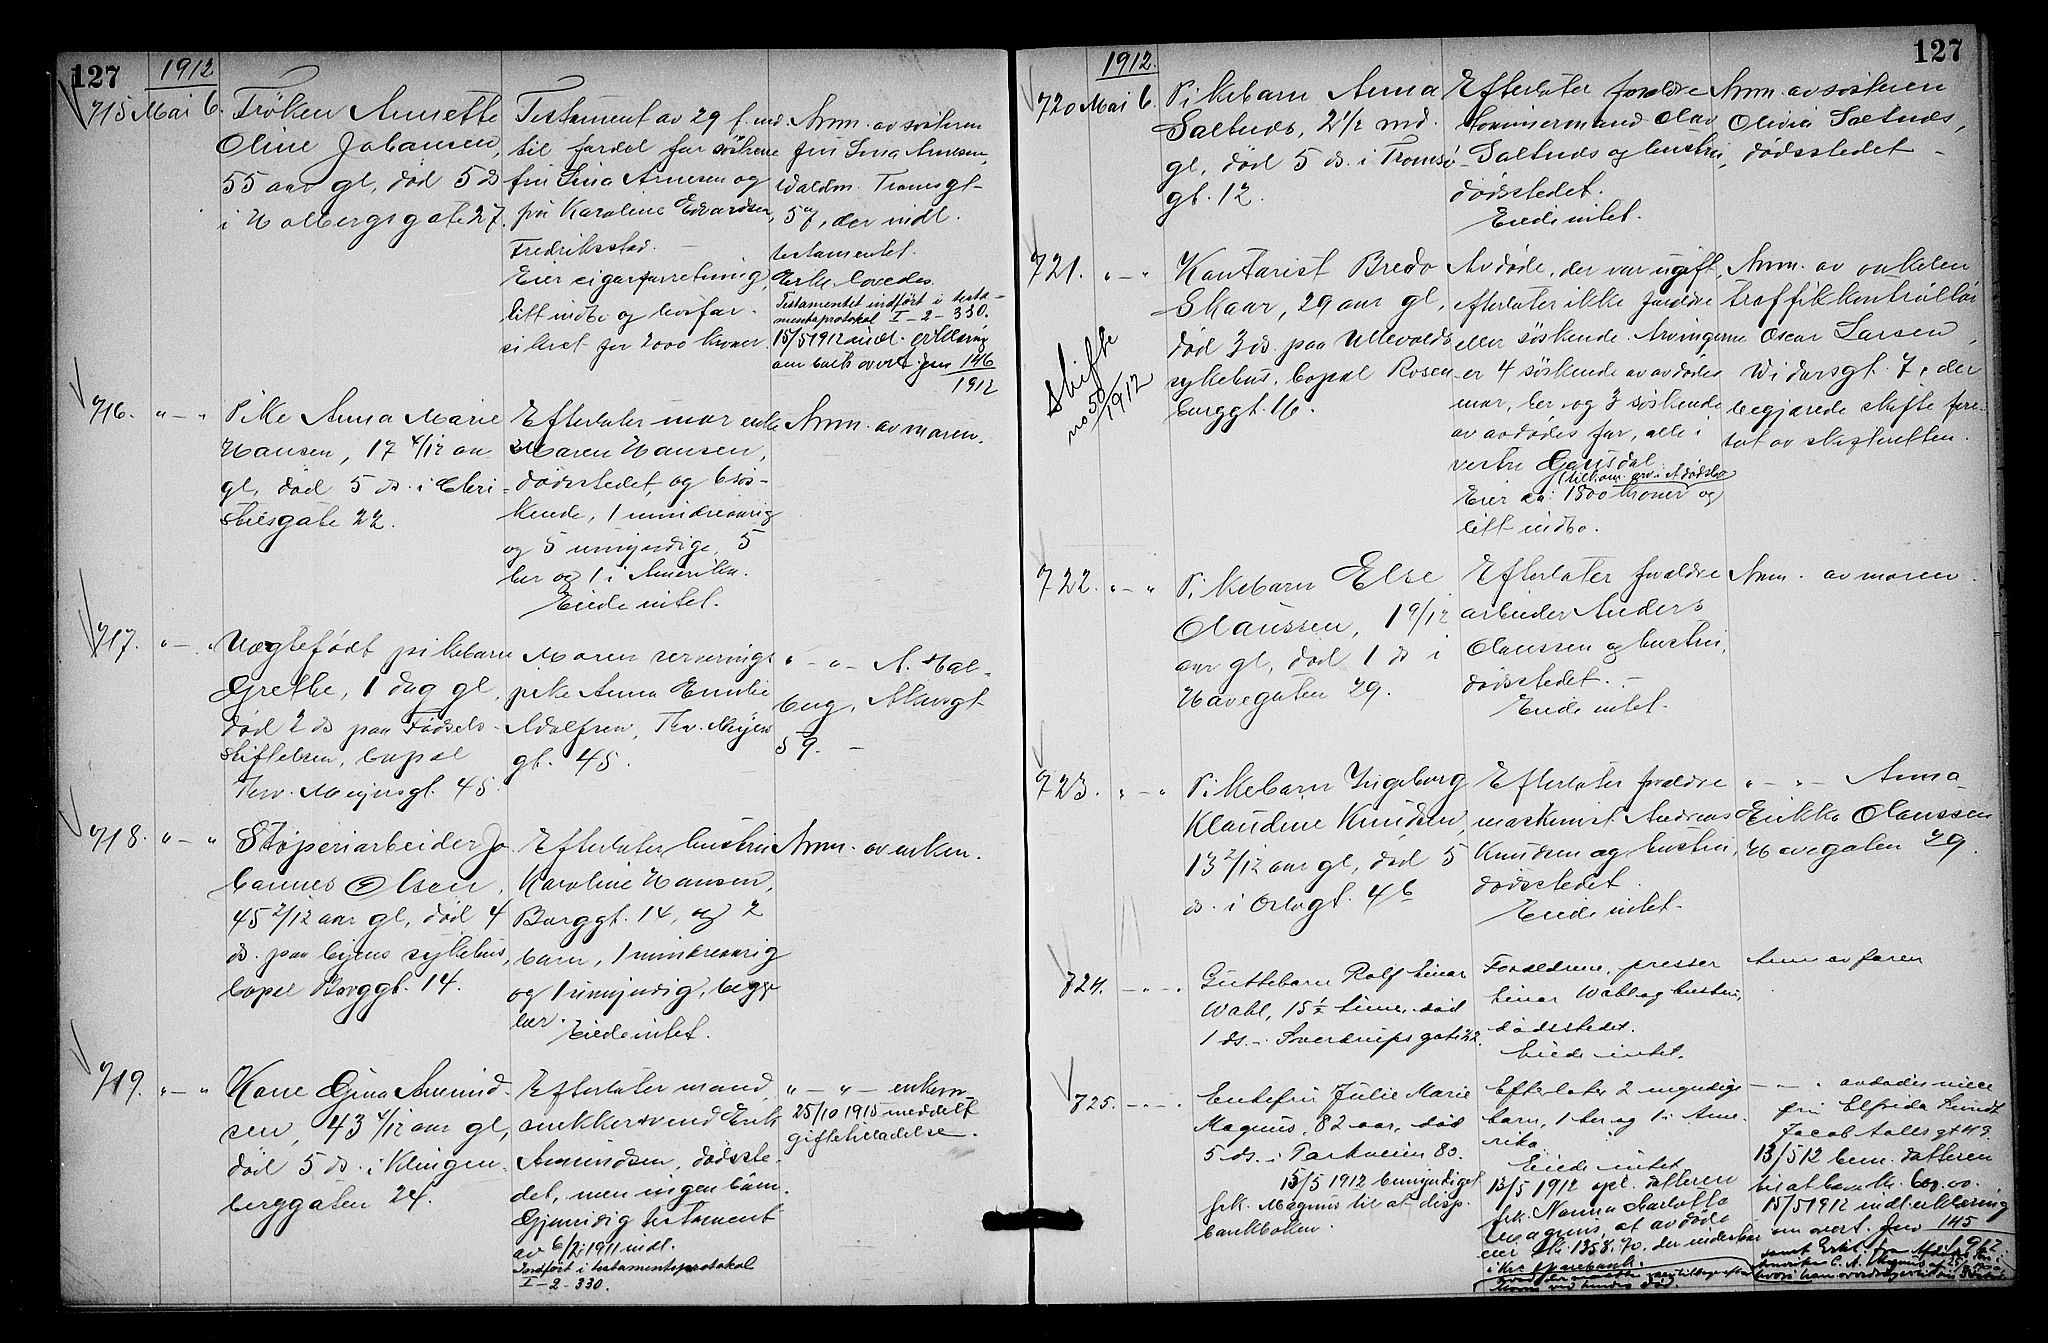 127
1912
715 Mai 6.
Frøken Annette
Oline Johansen,
55 aar gl, død 5 ds
i Holbergsgate 27.
Testament av 29 f. md
til fordel for søstrene
fru Lina Arnesen og
fru Karoline Edvardsen,
Fredriksstad.
Eier cigarforretning,
litt indbo og livsfor-
sikret for 2000 kroner.
Anm. av søsteren
fru Lina Arnesen,
Waldm. Thranesgt-
57, der indl.
testamentet.
Testamentet indført i testa-
mentsprotokol I-2-330.
15/5 1912 indl. erklæring
om boets overt. jnr 146
1912
716. " — "
Pike Anna Marie
Hansen, 17 4/12 aar
gl, død 5 ds. i Chri-
stiesgate 22.
Efterlater mor enke
Maren Hansen,
dødsstedet, og 6 søs-
kende, 1 mindreaarig
og 5 umyndige, 5
her og 1 i Amerika.
Eiede intet.
Anm. av moren.
717. " — "
Uægtefødt pikebarn
Grethe, 1 dag gl,
død 2 ds paa Fødsels-
stiftelsen, bopæl
Thv. Meyersgt. 45.
Moren serverings-
pike Anna Emilie
Adolfsen, Thv. Meyers
gt. 45.
" — " — A. Hol-
berg,
59. —
718. " — "
Støperiarbeider Jo-
hannes Olsen,
45 2/12 aar gl, død 4
ds. paa byens sykehus,
bopæl Borggt. 14.
Efterlater hustru
Karoline Hansen,
Borggt. 14, og 2
barn, 1 mindreaarig
og 1 umyndig, begge
her.
Eiede intet.
Anm. av enken.
719. " — "
Kone Gina Amund-
sen, 43 4/12 aar gl,
død 5 ds. i Klingen-
berggaten 24.
Efterlater mand,
snekkersvend Erik
Amundsen, dødsste-
det, men ingen barn.
Gjensidig testament
av 6/2 1911 indl.
Indført i testamentsprotokol
I-2-330.
" — " — enkem.
25/10 1915 meddelt
giftetilladelse.
1912.
127
720 Mai 6.
Pikebarn Anna
Saltnds, 2 1/2 md.
gl, død 5 ds. i Tromsø-
gt. 12.
Efterlater forældre
tømmermand Olav
Saltnds og hustru,
dødsstedet.
Eiede intet.
Anm. av søsteren
Olivia Saltnds,
dødsstedet —
721. " — "
Skifte
no 50
1912
Kontorist Bredo
Skaar, 29 aar gl,
død 3 ds. paa Ullevolds
sykehus, bopæl Rosen-
borggt. 16.
Avdøde, der var ugift,
efterlater ikke forældre
eller søskende. Arvingerne
er 4 søskende av avdødes
mor, her og 3 søskende
av avdødes far, alle i
vestre Gausdal.
Eier ca: 1800 kroner og
litt indbo.
Anm. av onkelen
traffikkontrollør
Oscar Larsen,
Widarsgt. 7, der
begjærede skifte fore-
tat av skifteretten.
722. " — "
Pikebarn Else
Olaussen, 1 9/12
aar gl, død 1 ds i
Havegaten 29.
Efterlater forældre
arbeider Anders
Olaussen og hustru,
dødsstedet. —
Eiede intet.
Anm. av moren.
723. " — "
Pikebarn Ingeborg
Klaudine Knudsen,
13 2/12 aar gl, død 5
ds. i Oslogt. 4b
Efterlater forældre
maskinist Andreas
Knudsen og hustru,
dødsstedet.
Eiede intet.
" — " — Anna
Erikka Olaussen
Havegaten 29.
724. " — "
Guttebarn Rolf Einar
Wahl, 15 1/2 time, død
1 ds. i Sverdrupsgate 22.
Forældrene, presser
Einar Wahl og hustru,
dødsstedet.
Eiede intet.
Anm av faren
725. — "
Enkefru Julie Marie
Magnus, 82 aar, død
5 ds. i Parkveien 80.
13/5 1912 bemyndiget
frk. Magnus til at disp.
bankboken.
Efterlater 2 myndige
barn, 1 her og 1 i Ame-
rika
Eiede intet
13/5 1912 opl. datteren
frk. Nanna Charlotte
Magnus, at avdøde
eier kr. 1358,70, der indestaar
i Kra Sparebank.
— " — avdødes niece
fru Elfrida Lundt
Jacob Aalls gt 49.
13/5 12 bem. datteren
til at hæve
15/5 1912 indl. erklæring
om overt. jnr 145
1912